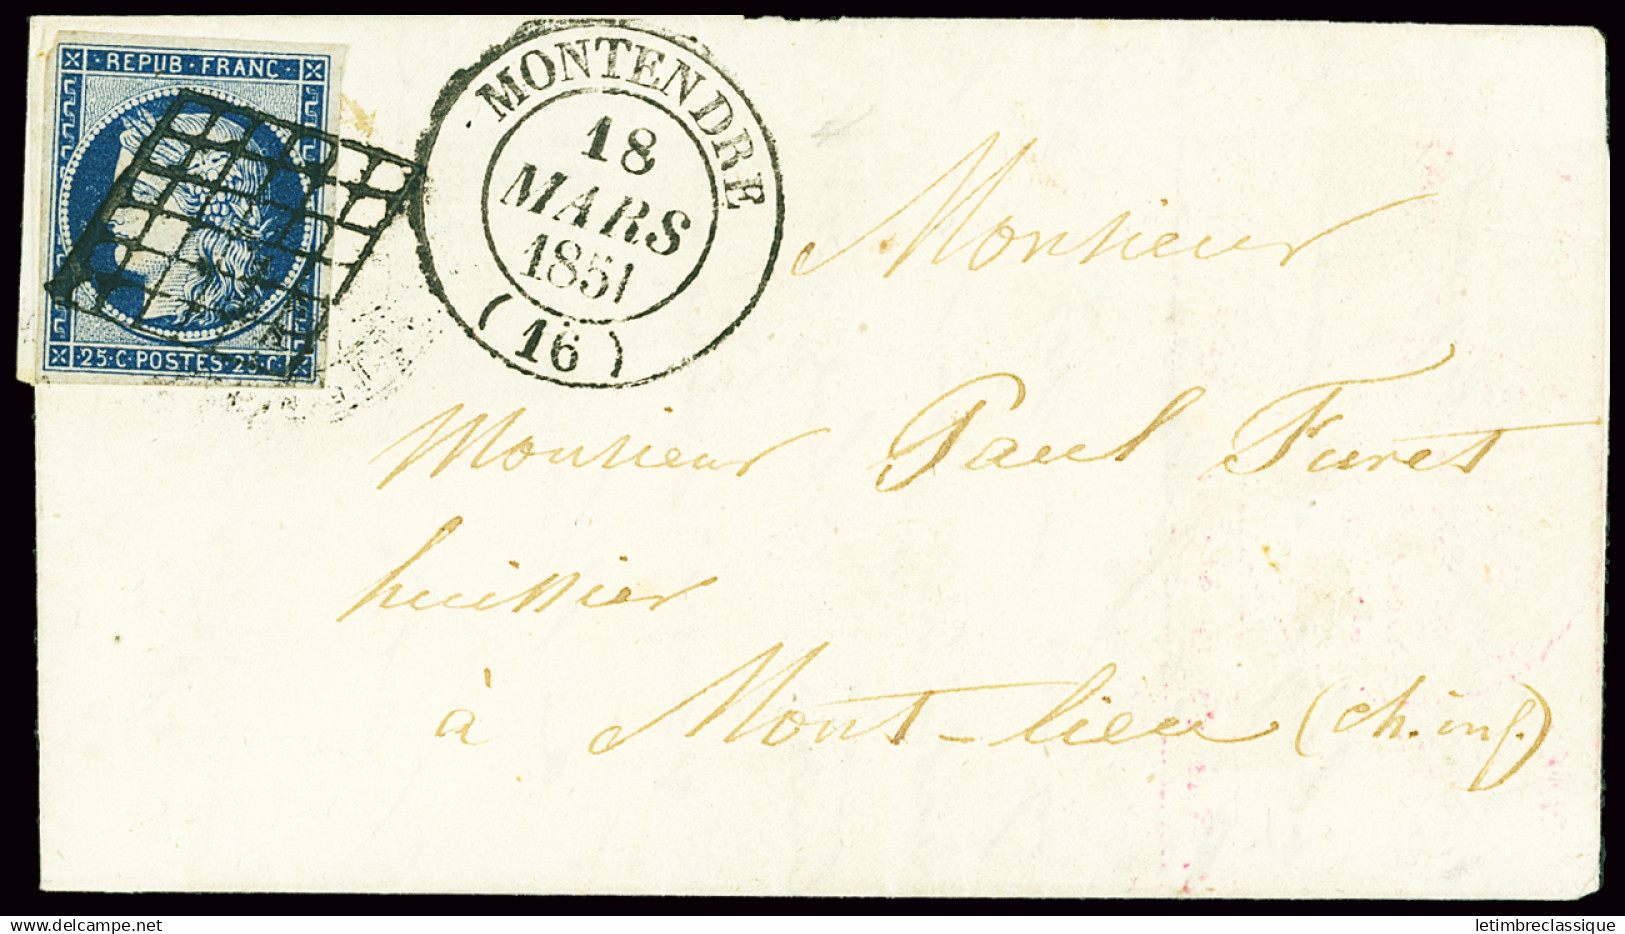 REPUB · FRANC ·
25 · C · POSTES · 25 · C
MONTENDRE
18
MARS
1851
(16)
Monsieur
Monsieur Paul Furet
huissier
à Mont-lieu (ch. inf.)
delcampe.net
letimbreclassique